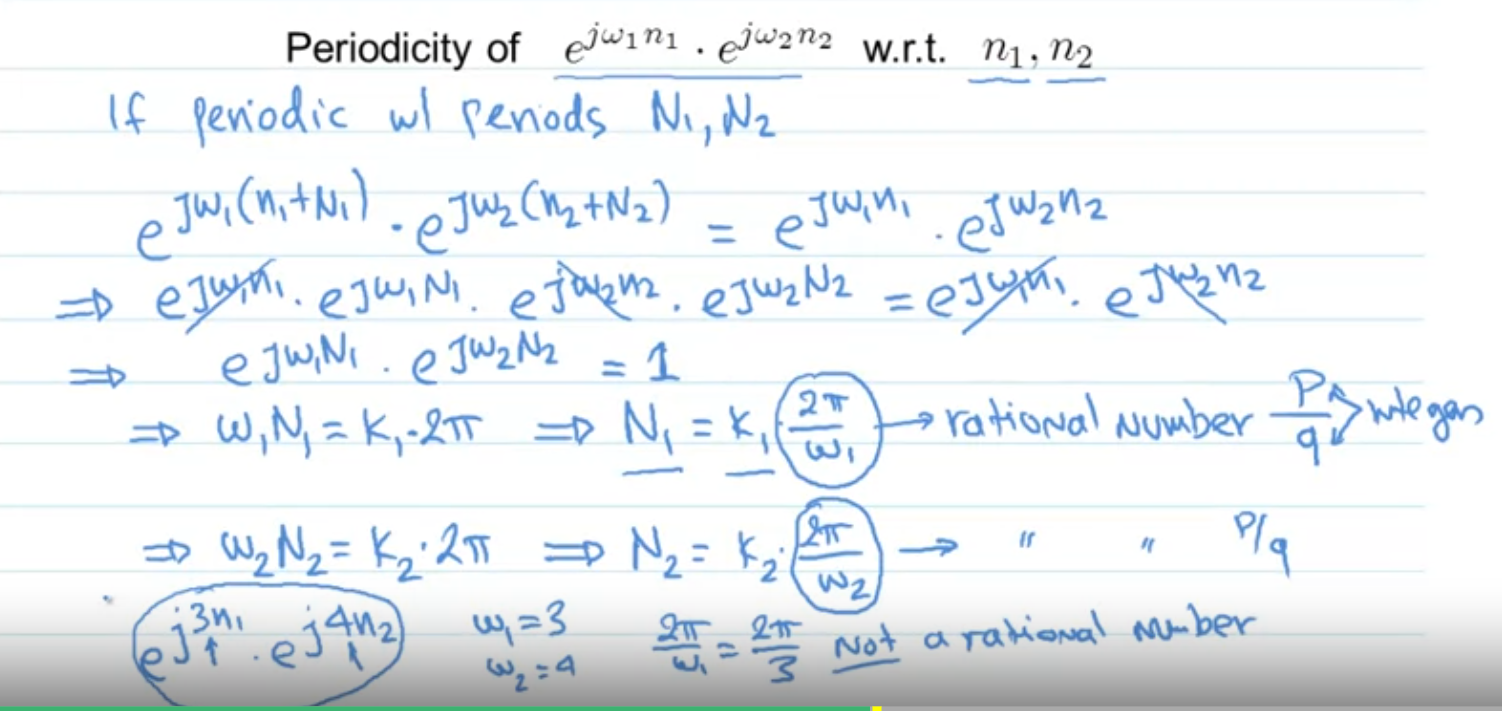 Periodicity of e^{jω₁n₁} · e^{jω₂n₂} w.r.t. n₁, n₂
If periodic w/ periods N₁, N₂
e^{jω₁(n₁+N₁)} · e^{jω₂(n₂+N₂)} = e^{jω₁n₁} · e^{jω₂n₂}
⇒ e^{jω₁n₁} · e^{jω₁N₁} · e^{jω₂n₂} · e^{jω₂N₂} = e^{jω₁n₁} · e^{jω₂n₂}
⇒ e^{jω₁N₁} · e^{jω₂N₂} = 1
⇒ ω₁N₁ = K₁·2π ⇒ N₁ = K₁·2π/ω₁ → rational number P/q > integers
⇒ ω₂N₂ = K₂·2π ⇒ N₂ = K₂·2π/ω₂ → " " P/q
e^{j3n₁} · e^{j4n₂} ω₁=3 2π/ω₁ = 2π/3 Not a rational number
ω₂=4